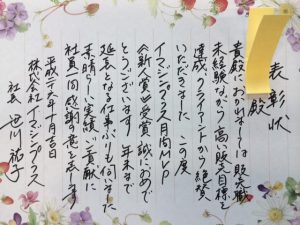 表彰状
殿
貴殿におかれましては販売職
未経験ながら高い販売目標を
達成、クライアントから絶賛
いただきました この度
イマジンプラス月間MVP
新人賞 受賞 誠におめで
とうございます 年末まで
延長となる仕事ぶりも伺いました
素晴しい実績・ご貢献に
社員一同感謝の意を表します
平成二十 年十月吉日
株式会社イマジンプラス
社長 笹川祐子